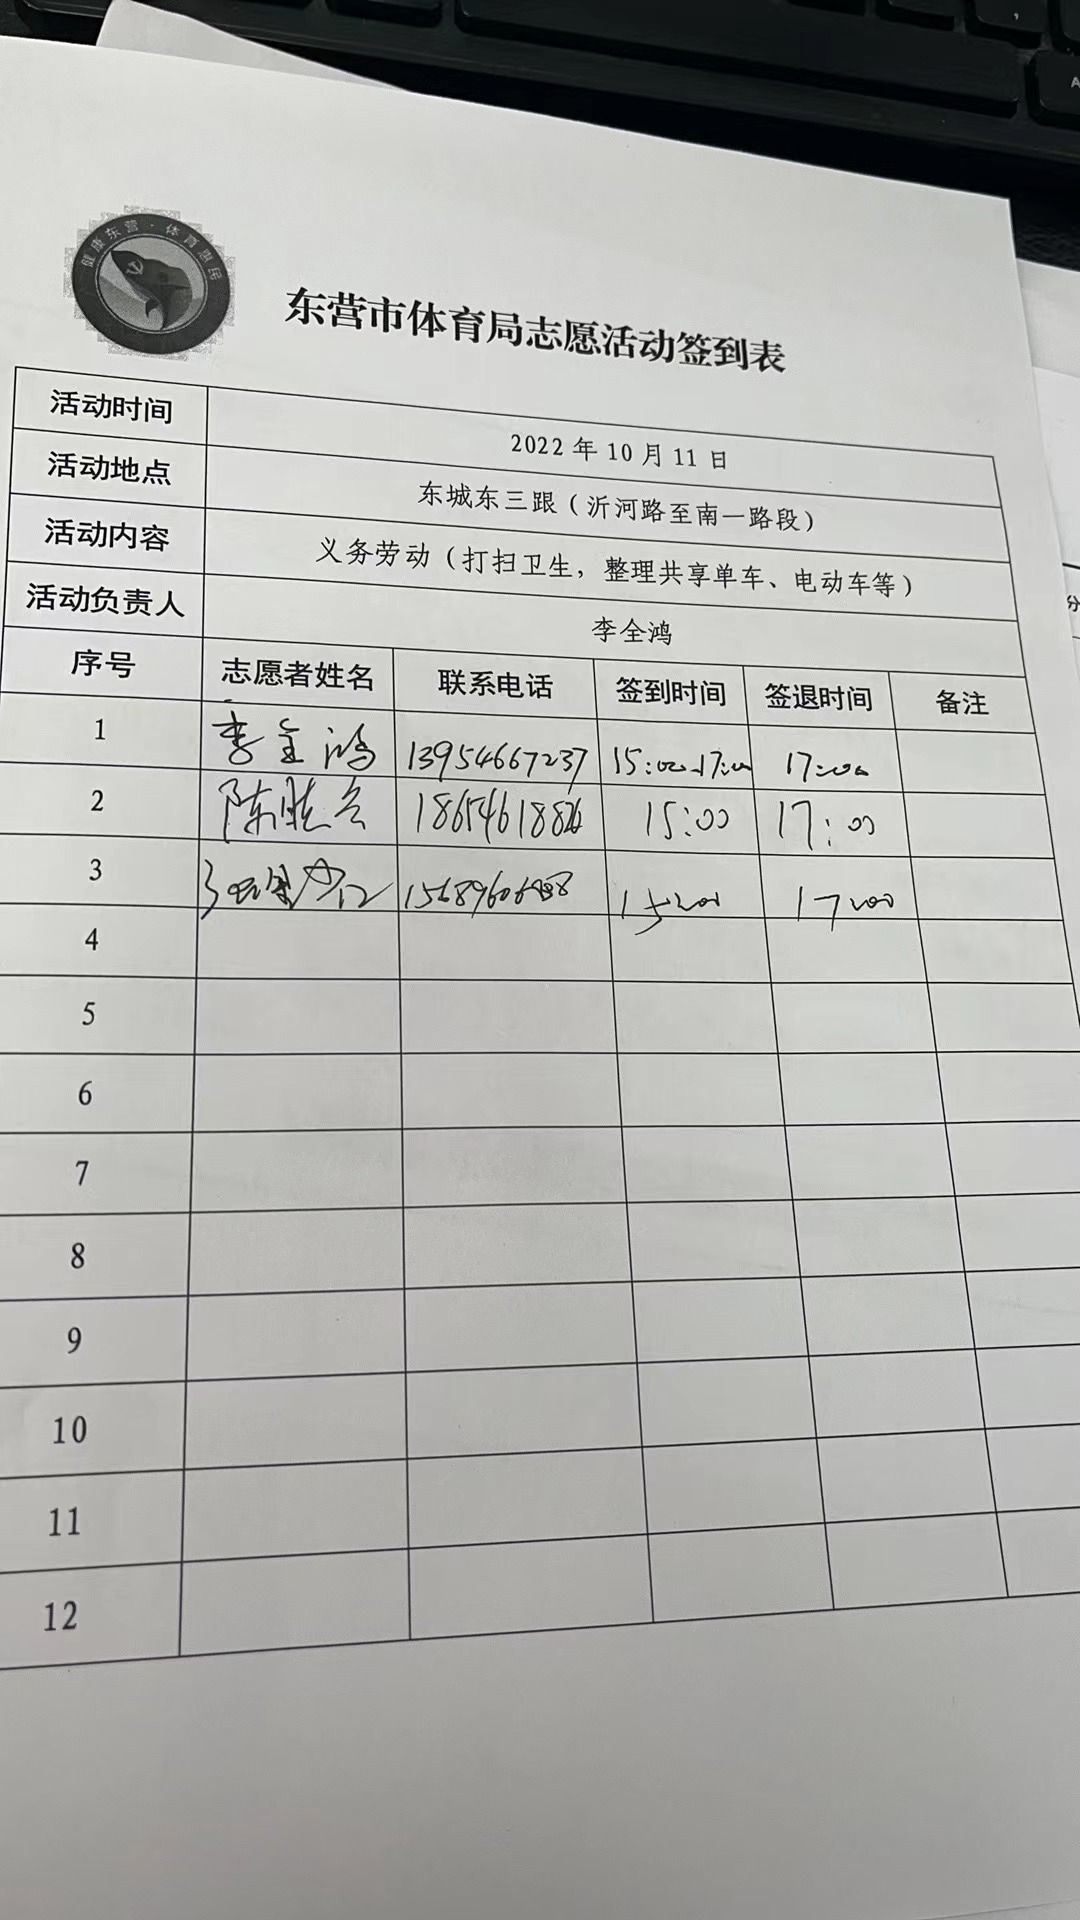 健康东营·体育惠民
东营市体育局志愿活动签到表
活动时间 2022 年 10 月 11 日
活动地点 东城东三跟（沂河路至南一路段）
活动内容 义务劳动（打扫卫生，整理共享单车、电动车等）
活动负责人 李全鸿
序号 志愿者姓名 联系电话 签到时间 签退时间 备注
1 李全鸿 13954667237 15:00-17:00 17:00
2 陈 15:00 17:00
3 15:00 17:00
4
5
6
7
8
9
10
11
12